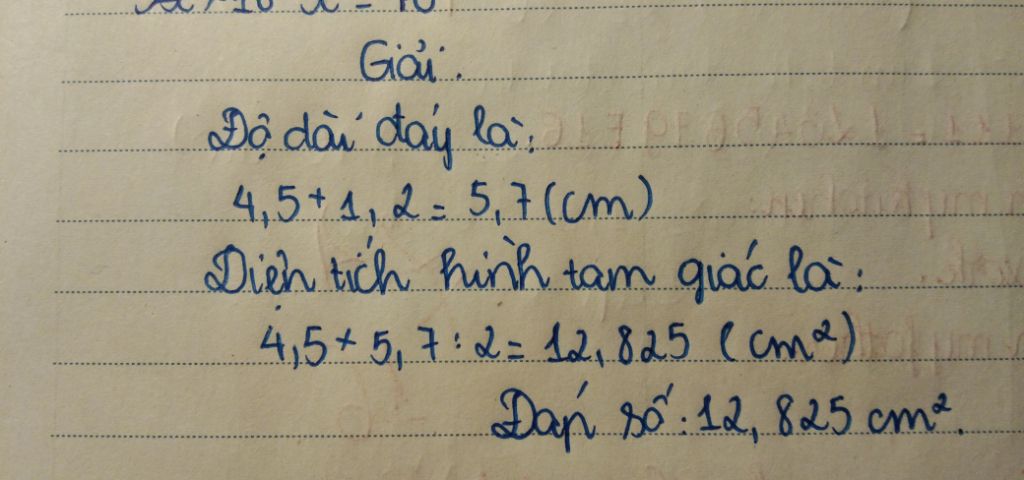 Giải.
Độ dài đáy là:
4,5 + 1,2 = 5,7 (cm)
Diện tích hình tam giác là:
4,5 × 5,7 : 2 = 12,825 (cm²)
Đáp số: 12,825 cm².